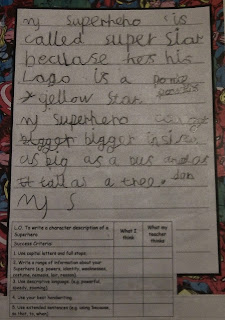 my Superhero is
called super star
beclase hes his
Logo is a
yellow star
my Superhero
bigger bigger
as big as a bus
tall as a tree.
My S
L.O. To write a character description of a Superhero
What I think
What my teacher thinks
Success Criteria:
1. Use capital letters and full stops.
2. Write a range of information about your Superhero (e.g. powers, identity, weaknesses, costume, nemesis, lair, reason)
3. Use descriptive language (e.g. powerful, speedy, zooming).
4. Use your best handwriting.
5. Use extended sentences (e.g. using 'because, so that, to, when)